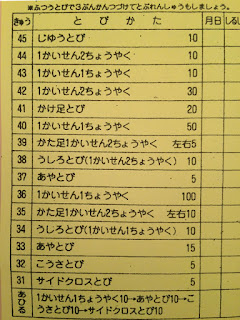 ※ふつうとびで3ぷんかんつづけてとぶれんしゅうもしましょう。
きゅう とびかた 月日 しるし
45 じゆうとび 10
44 1かいせん2ちょうやく 10
43 1かいせん1ちょうやく 10
42 1かいせん2ちょうやく 30
41 かけ足とび 20
40 1かいせん1ちょうやく 50
39 かた足1かいせん2ちょうやく 左右5
38 うしろとび(1かいせん2ちょうやく) 10
37 あやとび 5
36 1かいせん1ちょうやく 100
35 かた足1かいせん2ちょうやく 左右10
34 うしろとび(1かいせん1ちょうやく) 10
33 あやとび 15
32 こうさとび 5
31 サイドクロスとび 5
あひる 1かいせん1ちょうやく10→あやとび10→こ
うさとび10→サイドクロスとび10